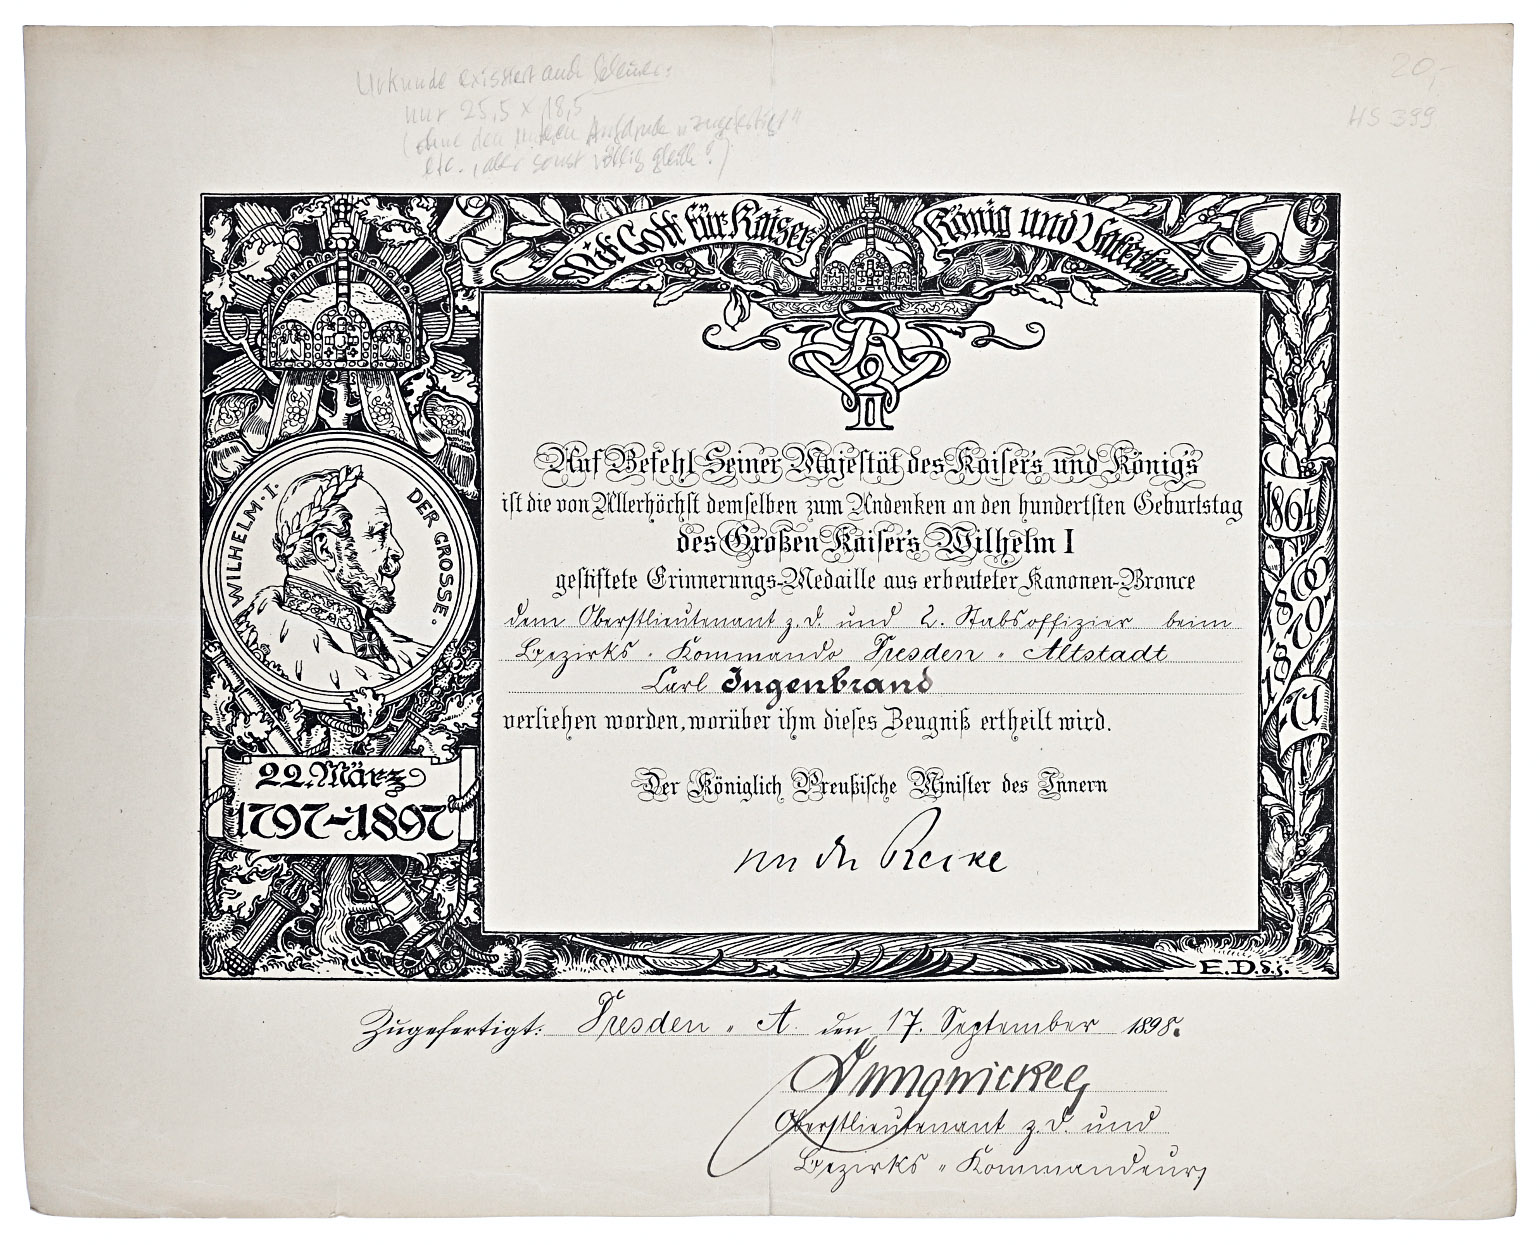 Urkunde existiert auch kleiner:
nur 25,5 x 18,5
(ohne den unteren Aufdruck "Zugefertigt"
etc., aber sonst völlig gleich!)
20,-
HS 399
Mit Gott für Kaiser
König und Vaterland
WILHELM · I · DER GROSSE ·
22. März
1797-1897
1864
1866
1870
71
WR II
Auf Befehl Seiner Majestät des Kaisers und Königs
ist die von Allerhöchst demselben zum Andenken an den hundertsten Geburtstag
des Großen Kaisers Wilhelm I
gestiftete Erinnerungs-Medaille aus erbeuteter Kanonen-Bronce
dem Oberstlieutenant z. D. und 2. Stabsoffizier beim
Bezirks-Kommando Dresden-Altstadt
Carl Ingenbrand
verliehen worden, worüber ihm dieses Zeugniß ertheilt wird.
Der Königlich Preußische Minister des Innern
von der Recke
E.D.d.J.
Zugefertigt: Dresden-A. den 17. September 1898.
Oberstlieutenant z. D. und
Bezirks-Kommandeur